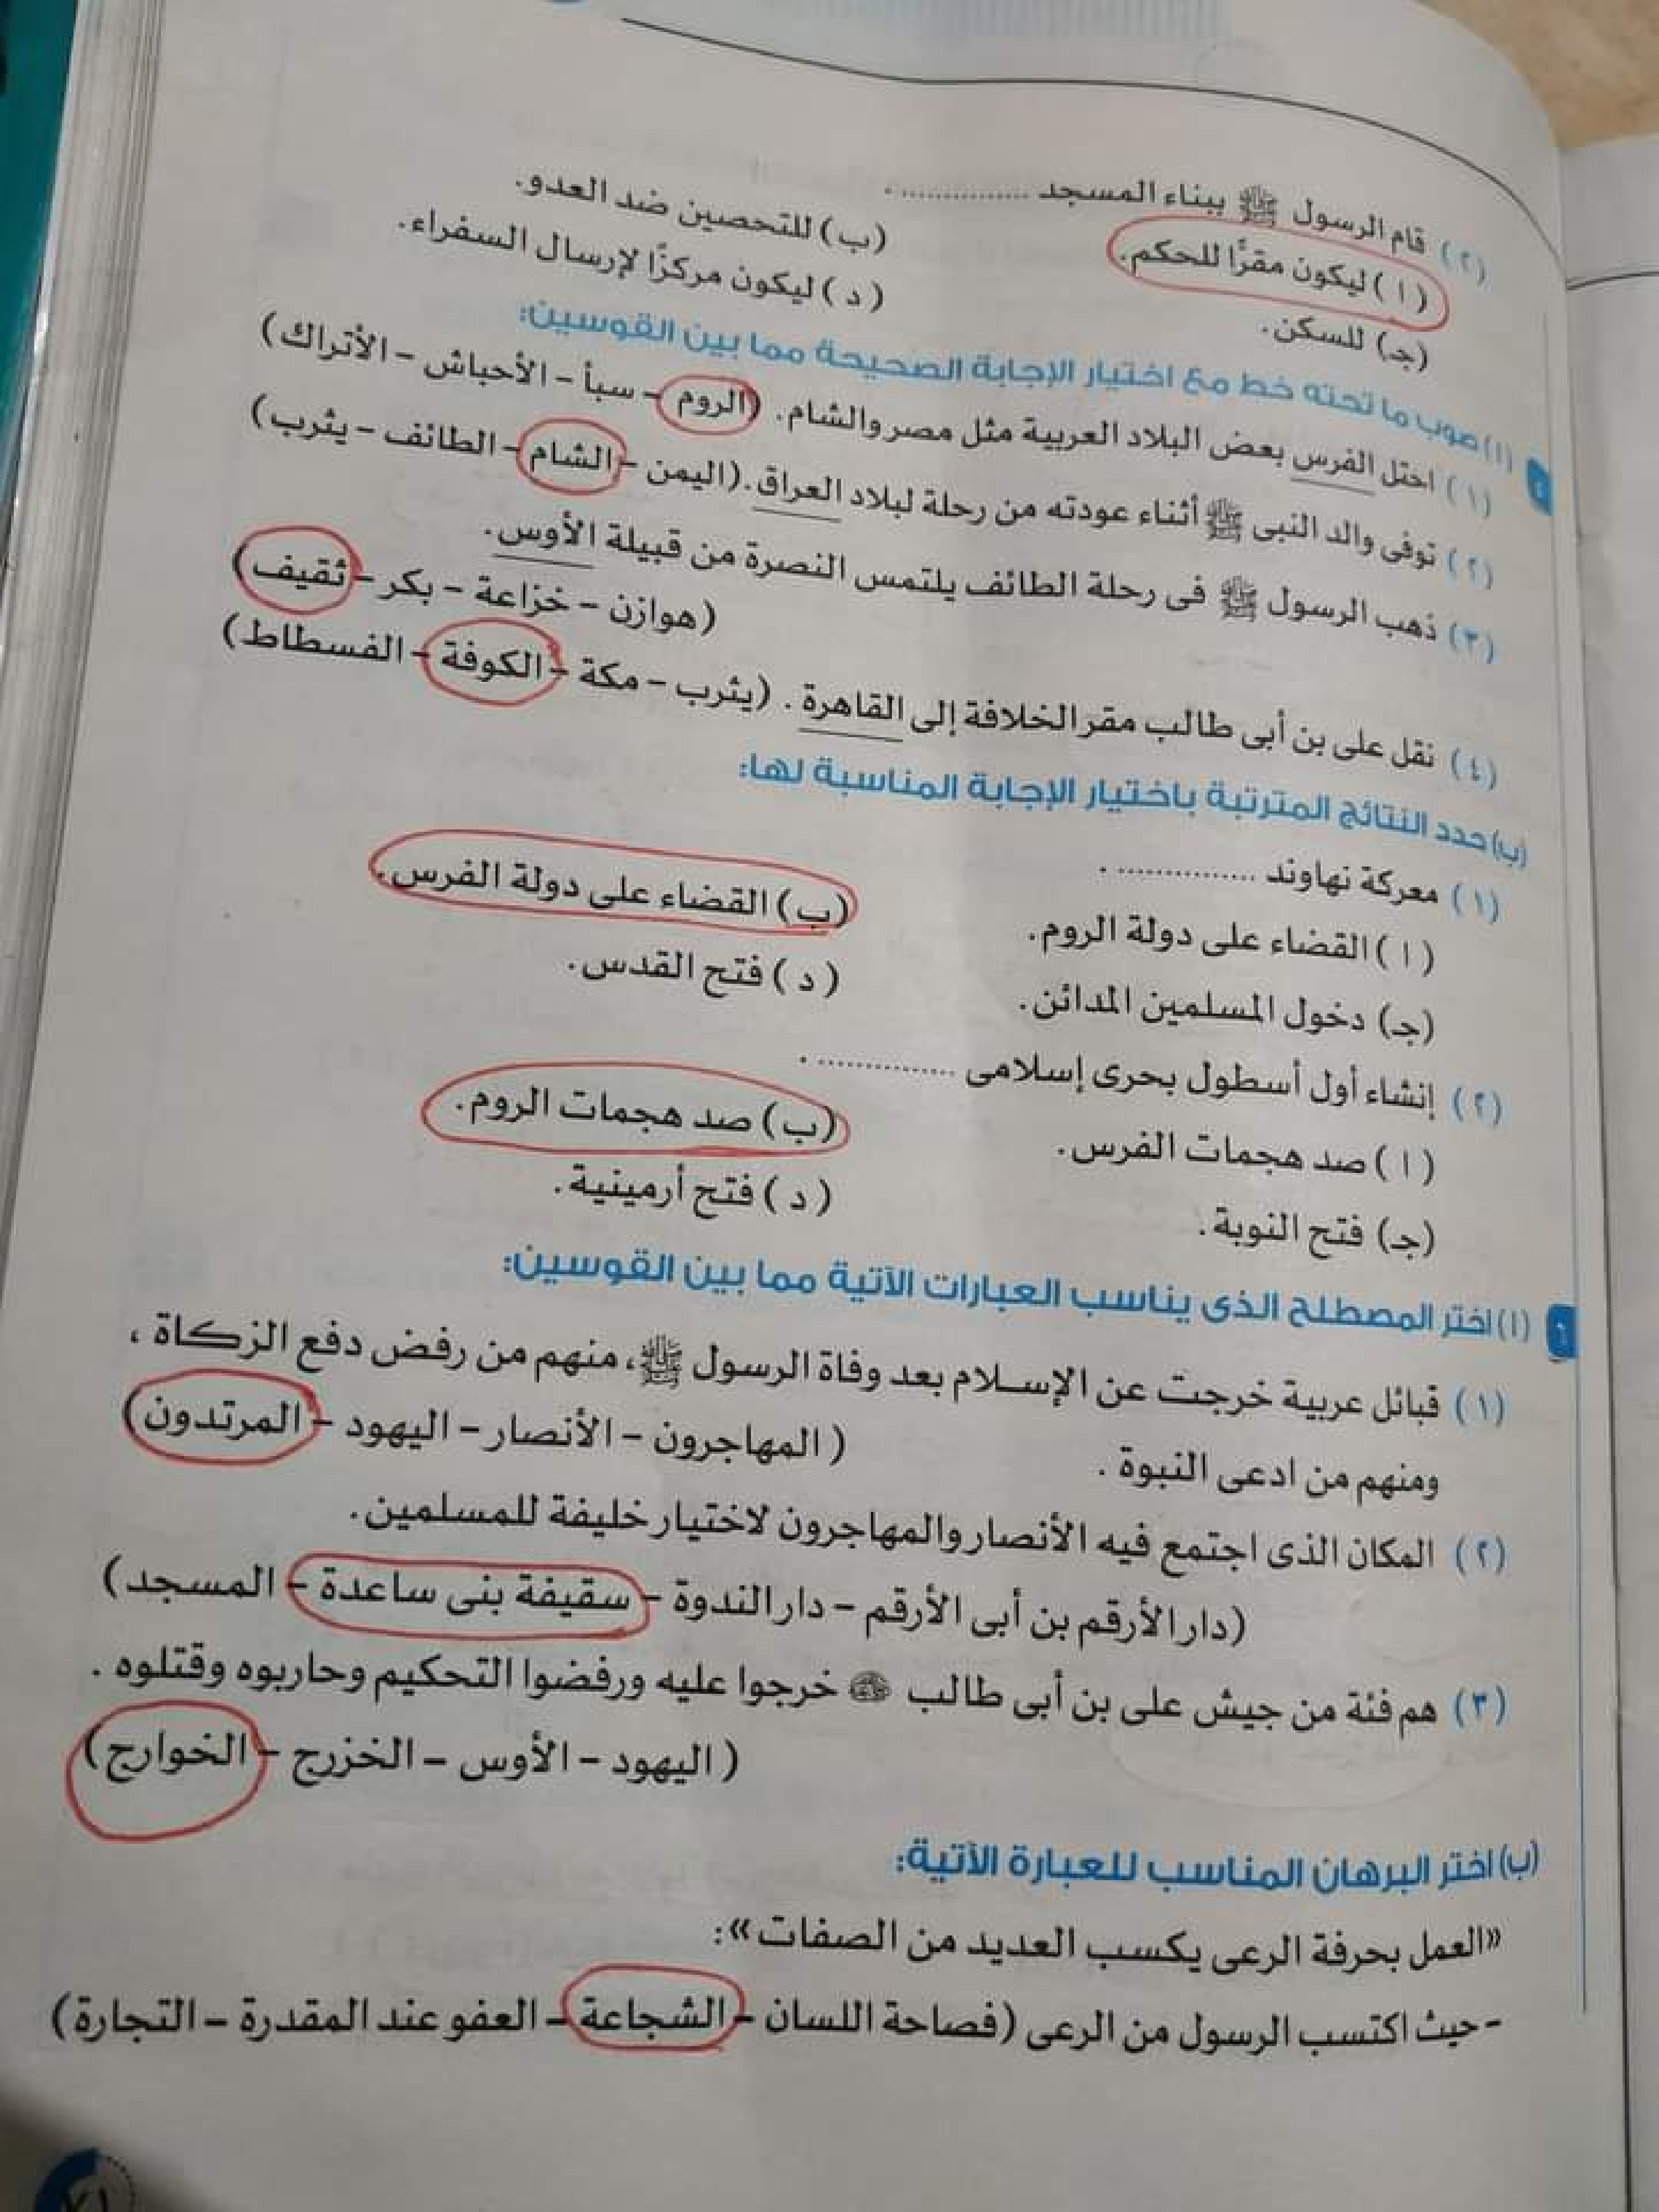 (٢) قام الرسول ﷺ ببناء المسجد ................ .
(ا) ليكون مقرًّا للحكم. (ب) للتحصين ضد العدو.
(جـ) للسكن. (د) ليكون مركزًا لإرسال السفراء.
(ا) صوب ما تحته خط مع اختيار الإجابة الصحيحة مما بين القوسين:
(١) احتل الفرس بعض البلاد العربية مثل مصر والشام. (الروم - سبأ - الأحباش - الأتراك)
(٢) توفى والد النبى ﷺ أثناء عودته من رحلة لبلاد العراق. (اليمن - الشام - الطائف - يثرب)
(٣) ذهب الرسول ﷺ فى رحلة الطائف يلتمس النصرة من قبيلة الأوس.
(هوازن - خزاعة - بكر - ثقيف)
(٤) نقل على بن أبى طالب مقر الخلافة إلى القاهرة. (يثرب - مكة - الكوفة - الفسطاط)
(ب) حدد النتائج المترتبة باختيار الإجابة المناسبة لها:
(١) معركة نهاوند ................ .
(ا) القضاء على دولة الروم. (ب) القضاء على دولة الفرس.
(جـ) دخول المسلمين المدائن. (د) فتح القدس.
(٢) إنشاء أول أسطول بحرى إسلامى ................ .
(ا) صد هجمات الفرس. (ب) صد هجمات الروم.
(جـ) فتح النوبة. (د) فتح أرمينية.
٦ (ا) اختر المصطلح الذى يناسب العبارات الآتية مما بين القوسين:
(١) قبائل عربية خرجت عن الإسلام بعد وفاة الرسول ﷺ، منهم من رفض دفع الزكاة،
ومنهم من ادعى النبوة. (المهاجرون - الأنصار - اليهود - المرتدون)
(٢) المكان الذى اجتمع فيه الأنصار والمهاجرون لاختيار خليفة للمسلمين.
(دار الأرقم بن أبى الأرقم - دار الندوة - سقيفة بنى ساعدة - المسجد)
(٣) هم فئة من جيش على بن أبى طالب خرجوا عليه ورفضوا التحكيم وحاربوه وقتلوه.
(اليهود - الأوس - الخزرج - الخوارج)
(ب) اختر البرهان المناسب للعبارة الآتية:
«العمل بحرفة الرعى يكسب العديد من الصفات»:
- حيث اكتسب الرسول من الرعى (فصاحة اللسان - الشجاعة - العفو عند المقدرة - التجارة)